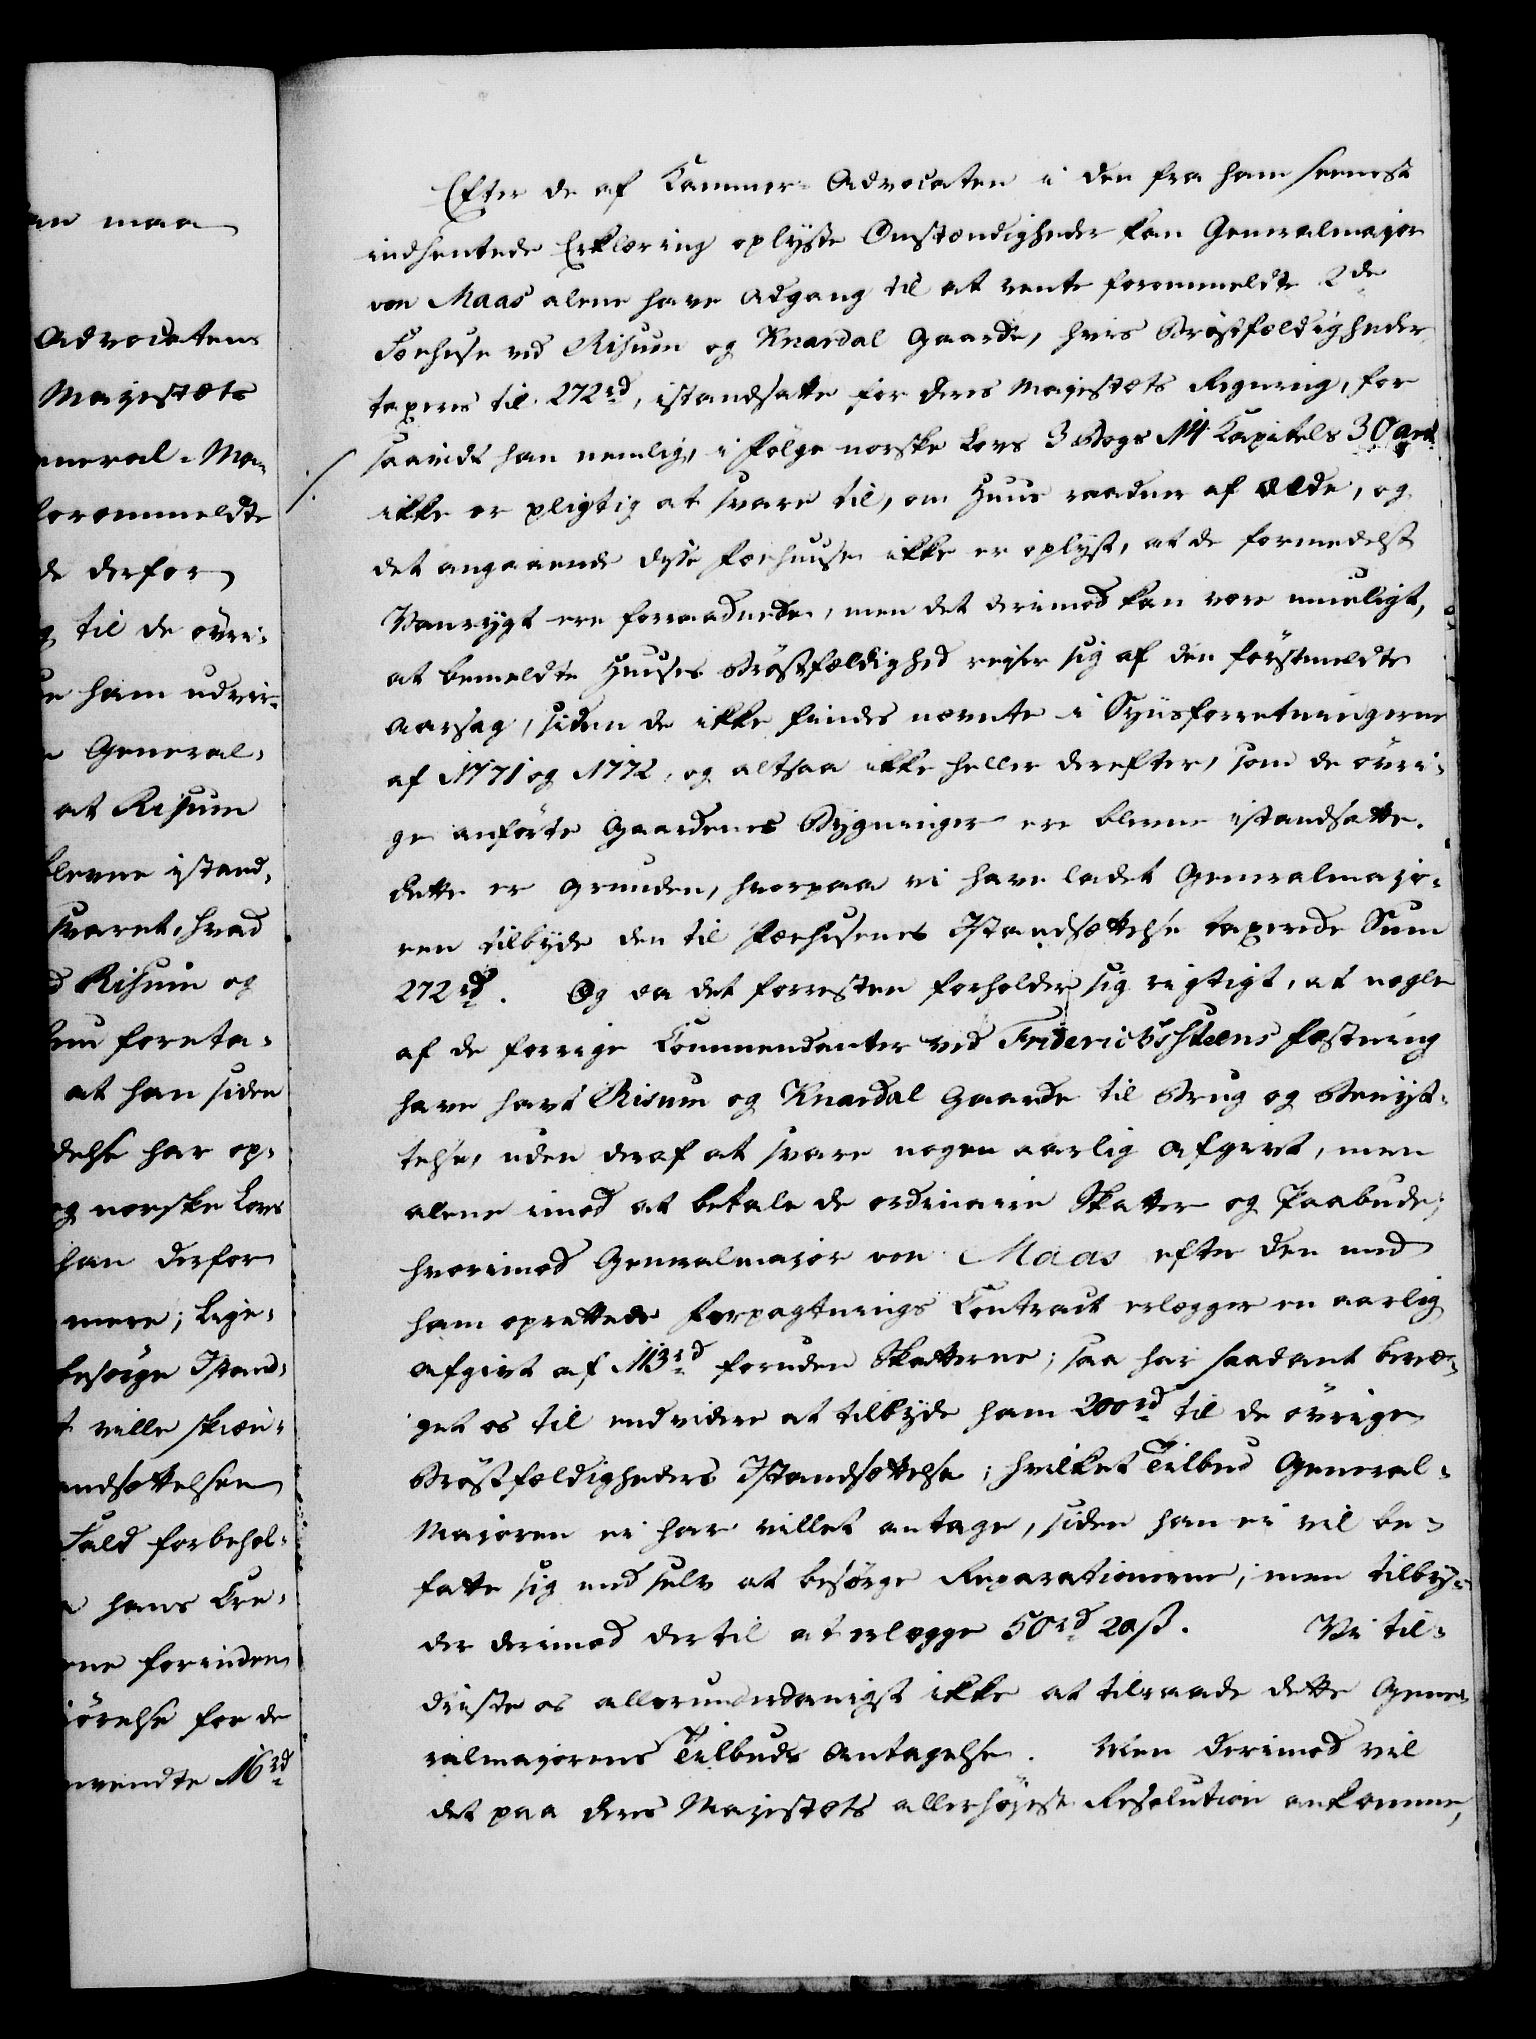 an maa
Advocatens
Majestæts
eneral-Ma-
forommeldte
de derfor
g til de övri-
e ham udvir-
e General-
at Risum
blevne istand-
svaret, hvad
d Risum og
foreta-
at han siden
delse har op-
og norske Lovs
han derfor
mere; lige-
besörge Istand-
t ville skiön-
andsættelsen
Fald forbehol-
a hans Cre-
ene forinden
iörelse for de
nvendte 16 rd
Efter de af Kammer-Advocaten i den fra ham seenest
indhentede Erklæring oplyste Omstændigheder kan Generalmajor
von Maas alene have Adgang til at vente forommeldte 2de
Foehuse ved Risum og Knardal Gaarde, hvis Bröstfældigheder
taxeres til 272 rd, istandsatte for Deres Majestæts Regning, for
saavidt han nemlig, i Fölge norske Lovs 3 Bogs 14 Capitels 30 art.
ikke er pligtig at svare til, om Huus raadner af Ælde, og
det angaaende disse Foehuuse ikke er oplyst, at de formedelst
Vanrygt ere forraadnede, men det derimod kan være mueligt,
at bemeldte Huuses Bröstfældighed reiser sig af den förstmeldte
Aarsag, siden de ikke findes nævnte i Synsforretningerne
af 1771 og 1772, og altsaa ikke heller derefter, som de övri-
ge anförte Gaardenes Bygninger ere blevne istandsatte.
Dette er Grunden, hvorpaa vi have ladet Generalmajo-
ren tilbyde den til Foehusenes Istandsættelse taxerede Sum
272 rd. Og da det forresten forholder sig rigtigt, at nogle
af de forrige Commendanter ved Fridericksteens Fæstning
have havt Risum og Knardal Gaarde til Brug og Benyt-
telse, uden deraf at svare nogen aarlig Afgivt, men
alene imod at betale de ordinaire Skatter og Paabude;
hvorimod Generalmajor von Maas efter den med
ham oprettede Forpagtnings Contract erlægger en aarlig
Afgivt af 113 rd foruden Skatterne; saa har saadant bevæ-
get os til endvidere at tilbyde ham 200 rd til de övrige
Bröstfældigheders Istandsættelse; hvilket Tilbud General-
Majoren ei har villet antage, siden han ei vil be-
fatte sig med selv at besörge Reparationerne; men tilby-
der derimod dertil at erlægge 50 rd 20 ß. Vi til-
driste os allerunderdanigst ikke at tilraade dette Gene-
ralmajorens Tilbuds Antagelse. Men derimod vil
det paa Deres Majestæts allerhöjeste Resolution ankomme,